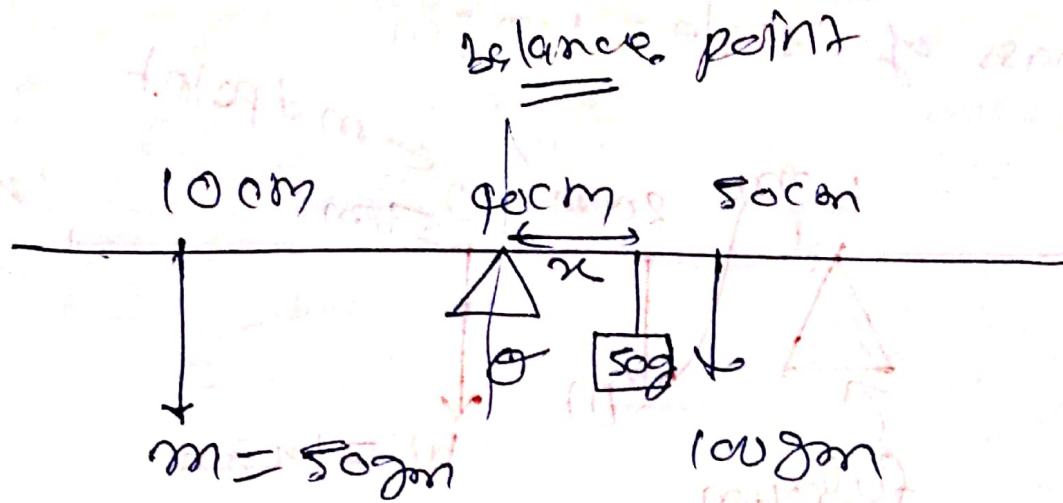 balance point
10cm 40cm 50cm
x
50g
m = 50gm 100gm